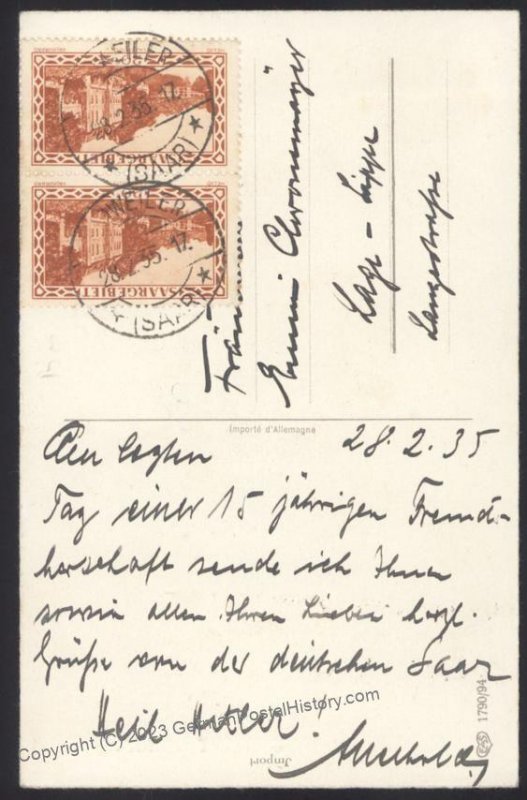 WEILER
28.2.35. 17.
(SAAR)
SAARGEBIET
WEILER
28.2.35. 17.
(SAAR)
SAARGEBIET
Fräulein
Lage – Lippe
Langestraße
Importé d'Allemagne
28.2.35
Tag einer 15 jährigen Fremd-
herschaft sende ich Ihnen
sowie allen Ihren Lieben herzl.
Grüße von der deutschen Saar
Heil Hitler!
Import
1790/94
Copyright (C) 2023 GermanPostalHistory.com